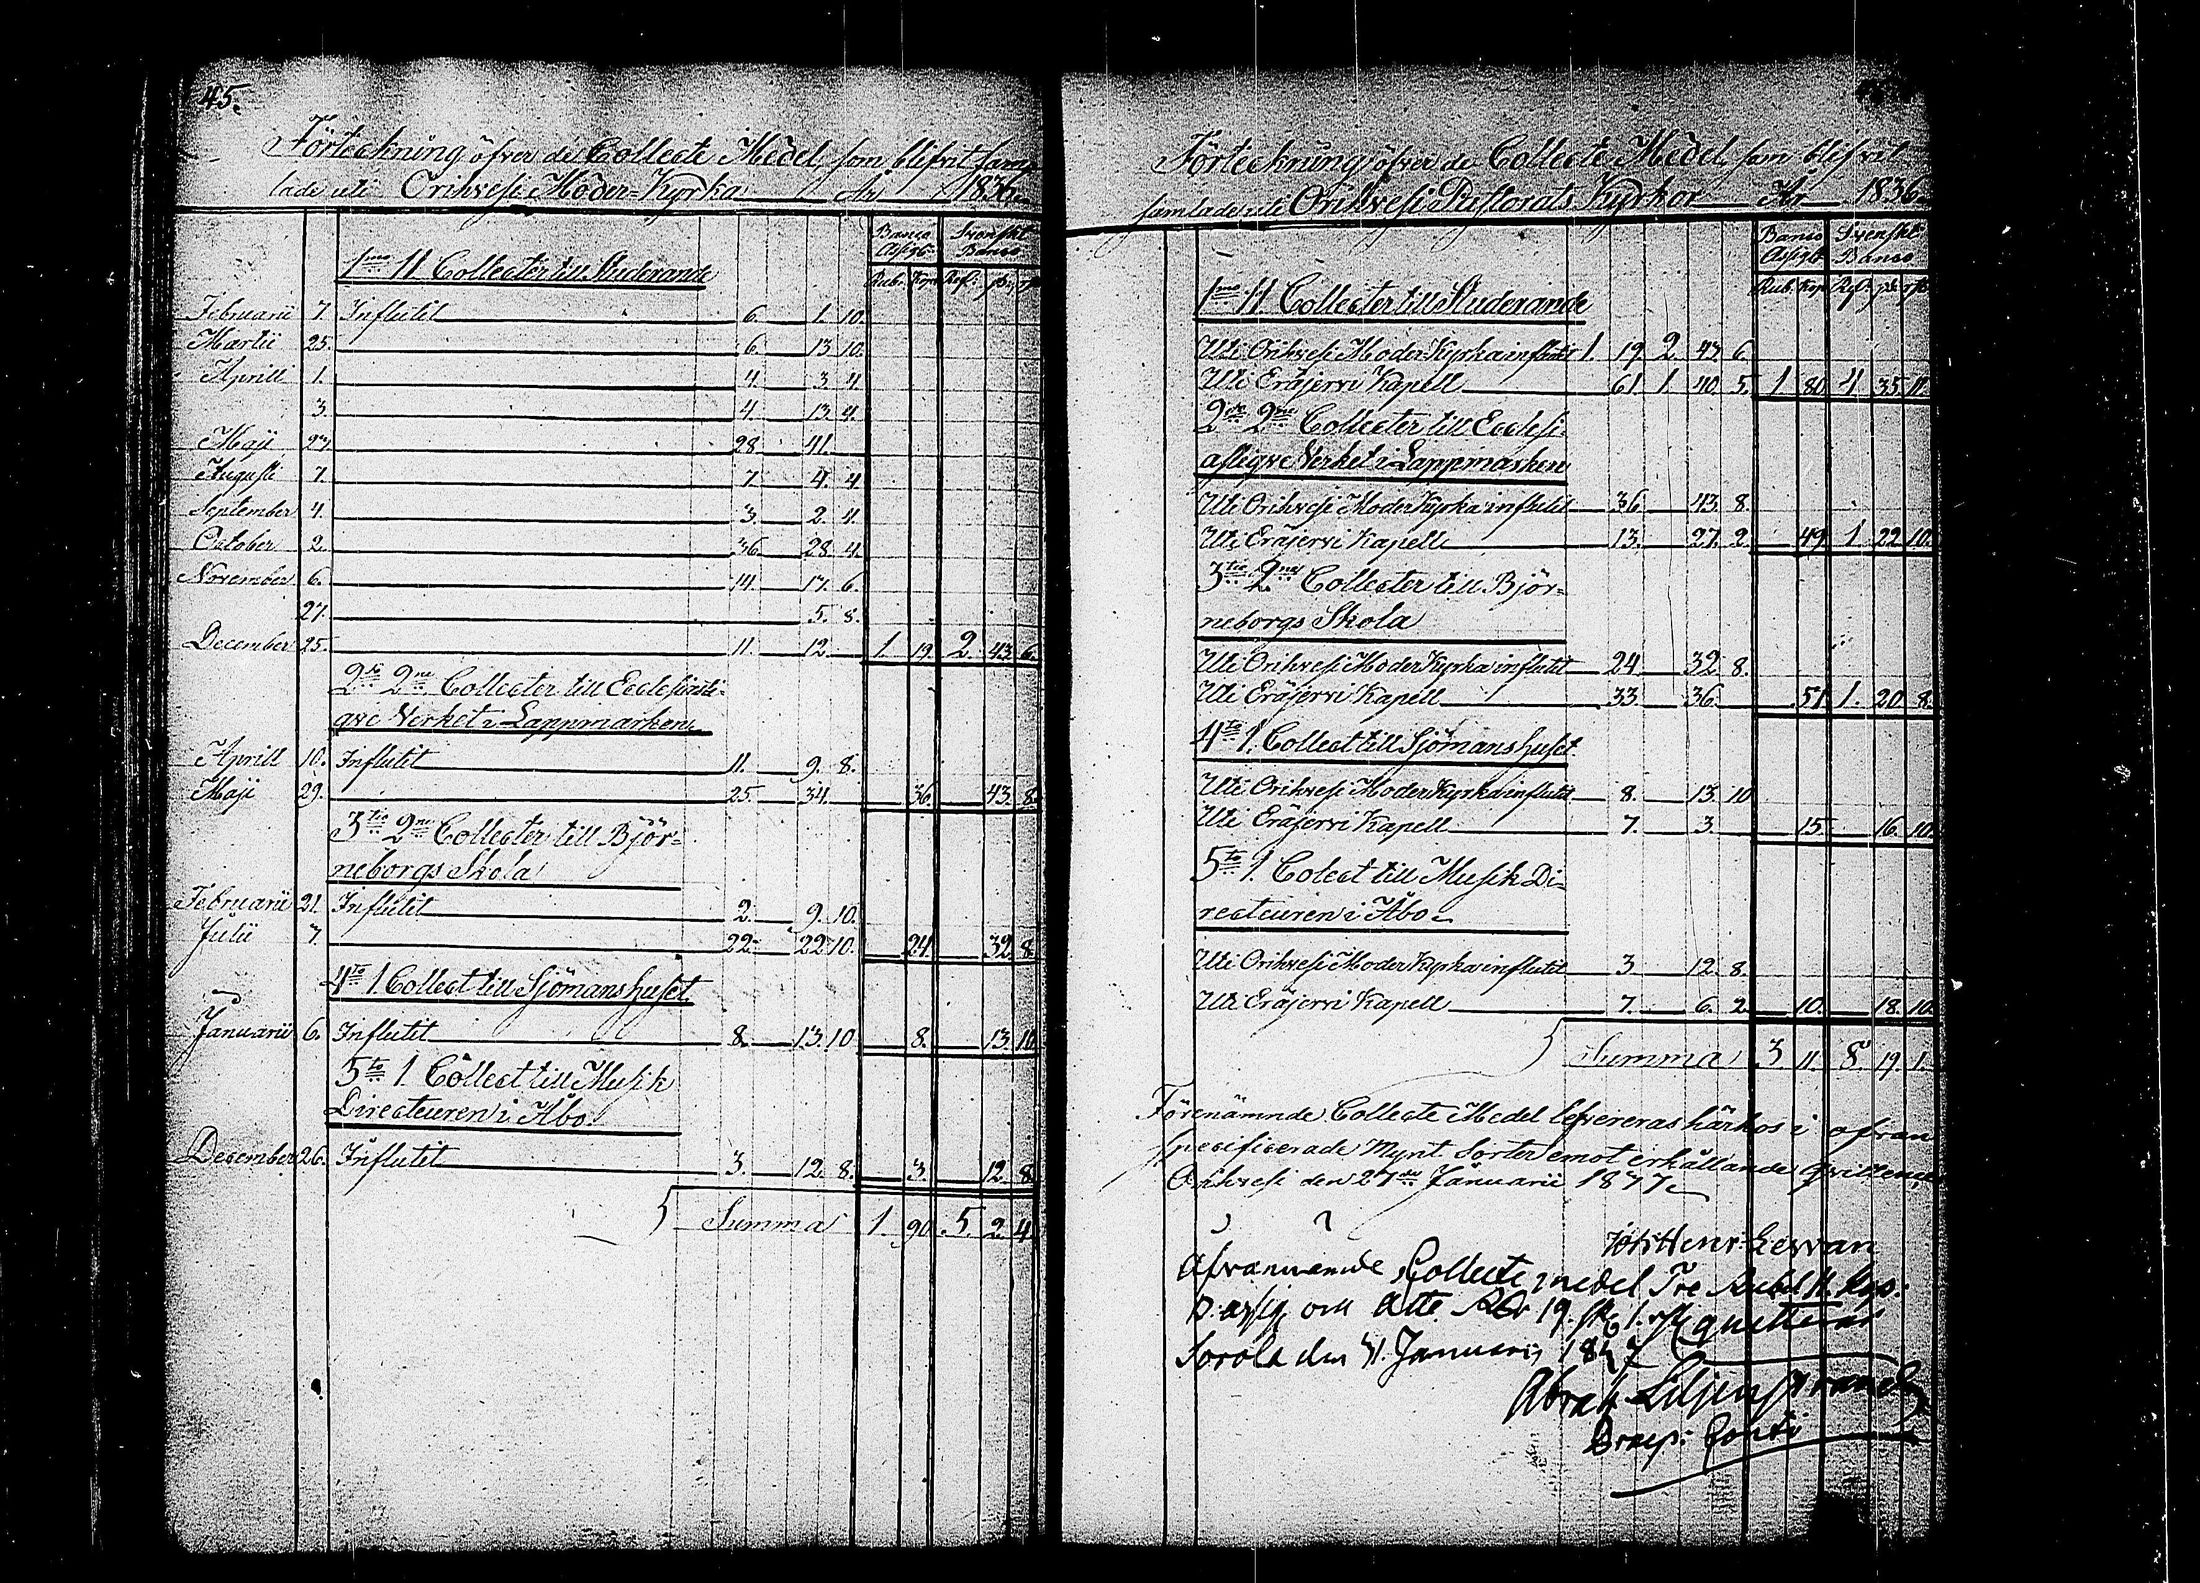 45.
Förteckning öfver de Collecte Medel, som blifvit sam-
lade uti Orihvesi Moder-Kyrka År 1836.
Banco Assigt. Svenskt Banco
Rub. Kop. Rd. sk. rst.
1mo 11 Collecter till Studerande
Februarii 7 Influtit 6. 1. 10.
Martii 25. 6. 13 10.
Aprill 1. 4. 3 4
3 4. 13. 4.
Maji 27. 28. 41.
Augusti 7. 7. 4. 4
September 4. 3. 2. 4.
October 2. 36. 28. 4.
November 6. 14. 17. 6.
27. 5. 8.
December 25. 11. 12 1. 19. 2. 43. 6.
2do 2ne Collecter till Ecclesiasti-
qve Verket i Lappmarken
Aprill 10. Influtit 11. 9. 8.
Maji 29. 25. 34. 36. 43. 8.
3tio 2ne Collecter till Björ-
neborgs Skola
Februarii 21. Influtit 2. 9. 10.
Julii 7. 22. 22. 10. 24. 32. 8.
4to 1. Collect till Sjömanshuset
Januarii 6. Influtit 8. 13. 10 8. 13. 10
5to 1. Collect till Musik
Directeuren i Åbo.
December 26. Influtit 3. 12. 8. 3. 12. 8.
Summa 1. 90. 5. 2. 4
Förteckning öfver de Collecte Medel, som blifvit
samlade uti Orihvesi Pastorats Kyrkor År 1836.
Banco Assigt. Svenskt Banco
Rub. Kop. Rd. sk. rst.
1mo 11 Collecter till Studerande
Uti Orihvesi Moder Kyrka influtit 1. 19. 2 43 6.
Uti Eräjervi Kapell 61. 1. 40. 5. 1 80. 4 35. 11.
2do 2ne Collecter till Ecclesi-
astiqve Verket i Lappmarken
Uti Orihvesi Moder Kyrka influtit 36 43. 8.
Uti Eräjervi Kapell 13. 27. 2. 49. 1 22. 10.
3tio 2ne Collecter till Björ-
neborgs Skola
Uti Orihvesi Moder Kyrka influtit 24 32. 8.
Uti Eräjervi Kapell 33 36. 57. 1. 20. 8.
4to 1. Collect till Sjömanshuset
Uti Orihvesi Moder Kyrka influtit 8. 13. 10
Uti Eräjervi Kapell 7. 3. 15. 16. 10.
5to 1. Colect till Musik Di-
recteuren i Åbo.
Uti Orihvesi Moder Kyrka influtit 3 12. 8.
Uti Eräjervi Kapell 7. 6. 2. 10. 18. 10.
Summa 3. 11. 8. 19. 1.
Förenämnde Collecte Medel lefvereras härhos i ofvan
specificerade Mynt Sorter emot erhållande qvittence
Orihvesi den 27de Januarii 1837.
Henr.
Ofvannämde Collecte medel Tre Rubel 11. Kop.
B. assig. och Åtta RD 19 sk 1. rst qvitteras
Sorola den 31. Januarii 1837
Abrah. Liljenstrand